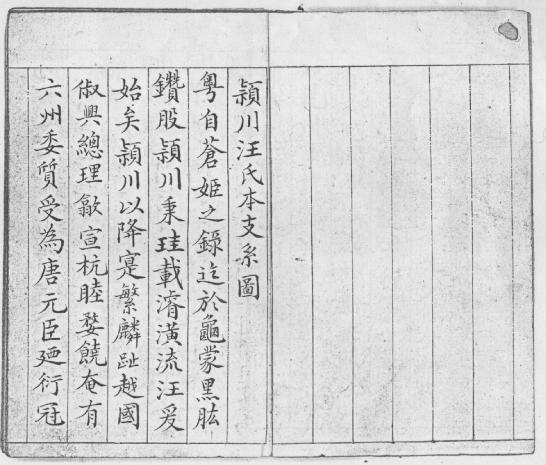 潁川汪氏本支系圖
粵自蒼姬之錄迄於龜蒙黑肱
鑽股潁川秉珪載濬潢流汪爰
始矣潁川以降寔繁麟趾越國
俶興總理歙宣杭睦婺饒奄有
六州委質受為唐元臣廼衍冠